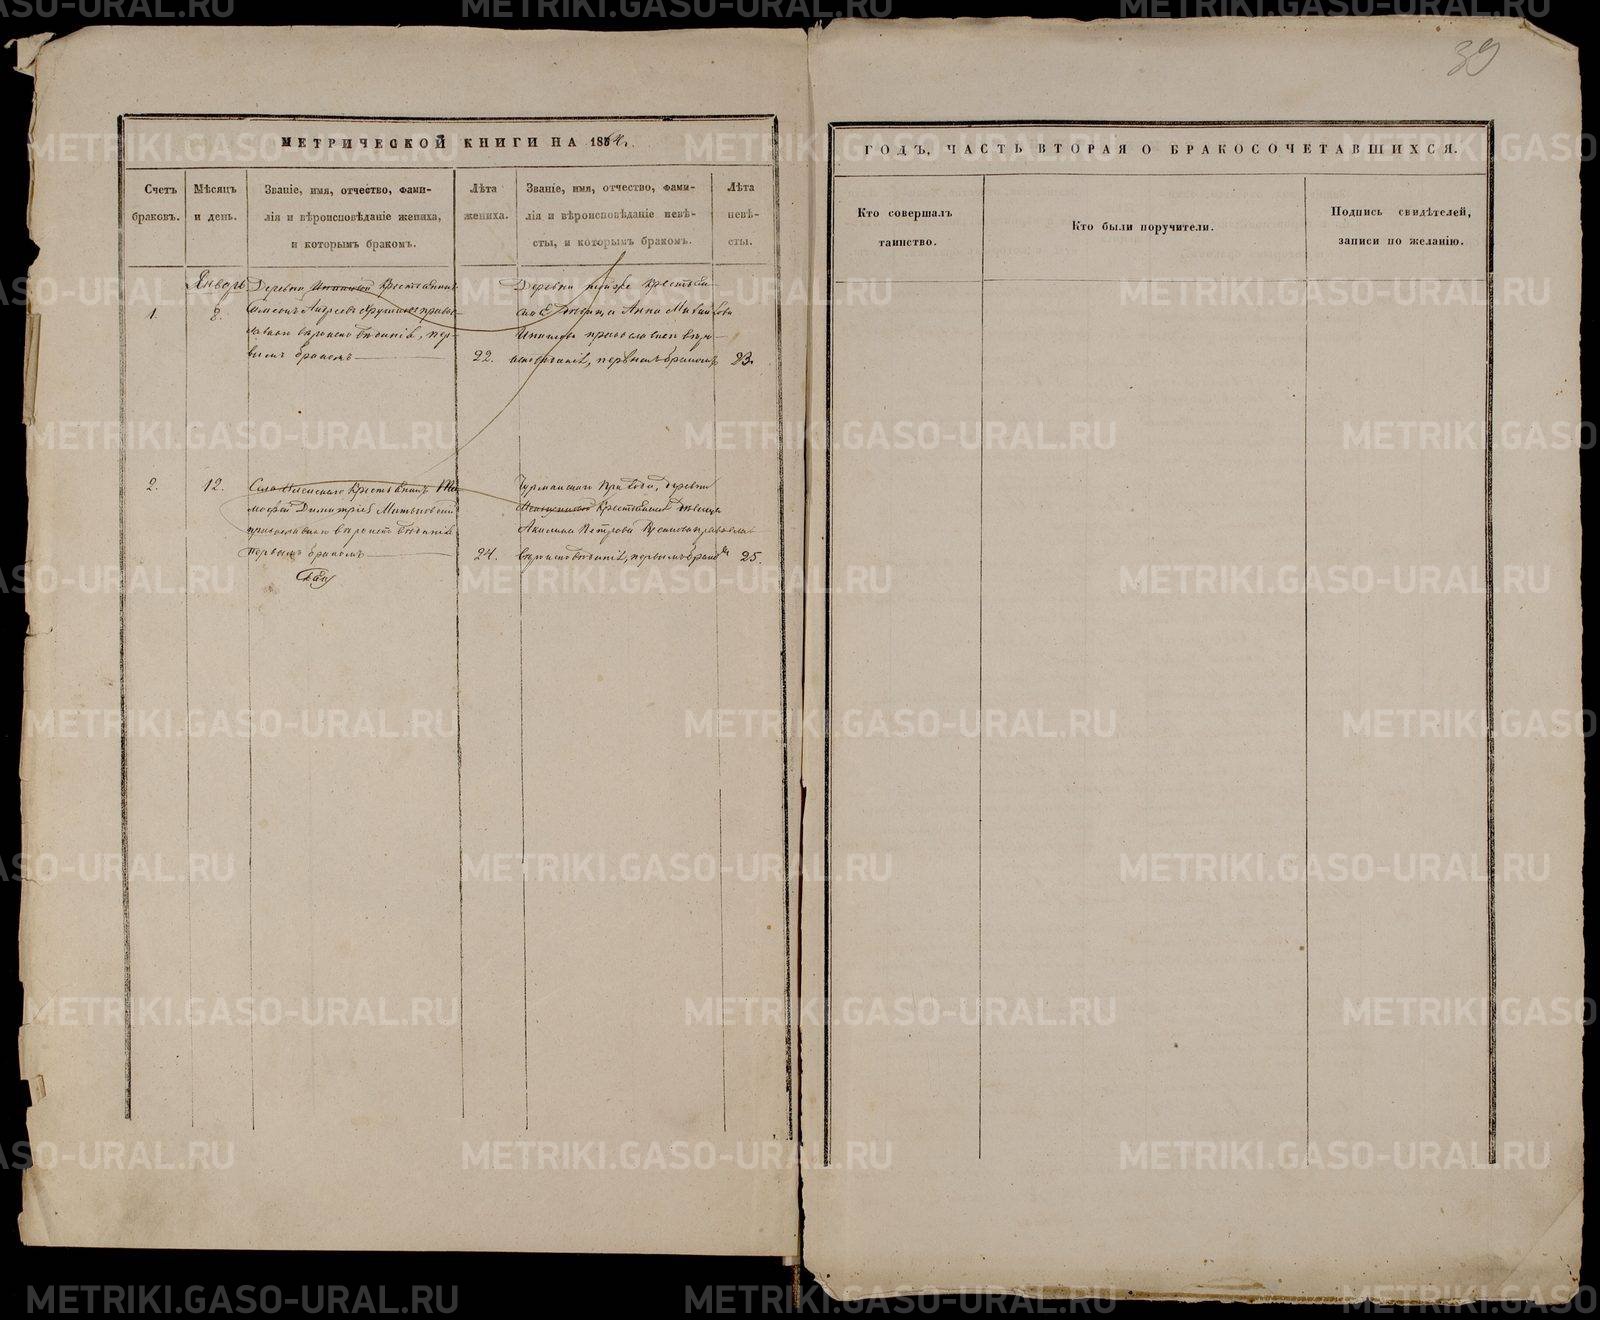 39
МЕТРИЧЕСКОЙ КНИГИ НА 1864.
ГОДЪ, ЧАСТЬ ВТОРАЯ О БРАКОСОЧЕТАВШИХСЯ.
Счетъ
браковъ.
Мѣсяцъ
и день.
Званіе, имя, отчество, фами-
лія и вѣроисповѣданіе жениха,
и которымъ бракомъ.
Лѣта
жениха.
Званіе, имя, отчество, фами-
лія и вѣроисповѣданіе невѣ-
сты, и которымъ бракомъ.
Лѣта
невѣ-
сты.
Кто совершалъ
таинство.
Кто были поручители.
Подпись свидѣтелей,
записи по желанію.
Январь
1.
8.
Деревни Крестьянинъ
Андреевъ правос-
лавнаго вѣроисповѣданія, пер-
вымъ бракомъ
22.
Деревни тойже Крестьян-
ская Анна Михайлова
православнаго вѣро-
исповѣданія, первымъ бракомъ
23.
2.
12.
Села Крестьянинъ Ти-
мофей Димитріевъ
православнаго вѣроисповѣданія
первымъ бракомъ
24.
Прихода, деревни
Крестьянская дѣвица
Акилина Петрова православнаго
вѣроисповѣданія, первымъ бракомъ
25.
METRIKI.GASO-URAL.RU